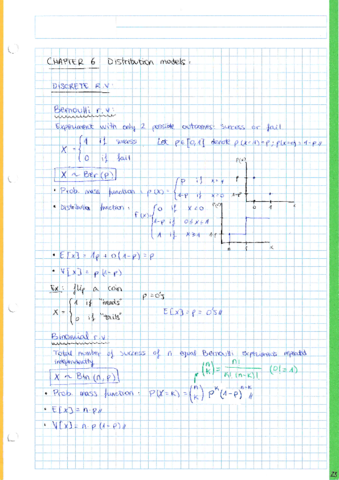 CHAPTER 6 Distribution models.
DISCRETE R.V:
Bernoulli r.v:
Experiment with only 2 possible outcomes: success or fail
X = { 1 if success Let p∈[0,1] denote p(x=1)=p; p(x=0)=1-p
0 if fail
X ~ Ber(p)
• Prob. mass function: p(x) = { p if x=1
1-p if x=0
• Distribution function:
F(x) = { 0 if x<0
1-p if 0≤x<1
1 if x≥1
• E[x] = 1p + 0(1-p) = p
• V[x] = p(1-p)
Ex: flip a coin
X = { 1 if "heads" p=0's
0 if "tails" E[x]=p=0's
Binomial r.v:
Total number of success of n equal Bernoulli experiments repeated
independently
X ~ Bin(n,p)
(n K) = n! / K!(n-K)! (0!=1)
• Prob. mass function: P(X=K) = (n K) p^K (1-p)^n-K
• E[x] = n·p
• V[x] = n·p(1-p)